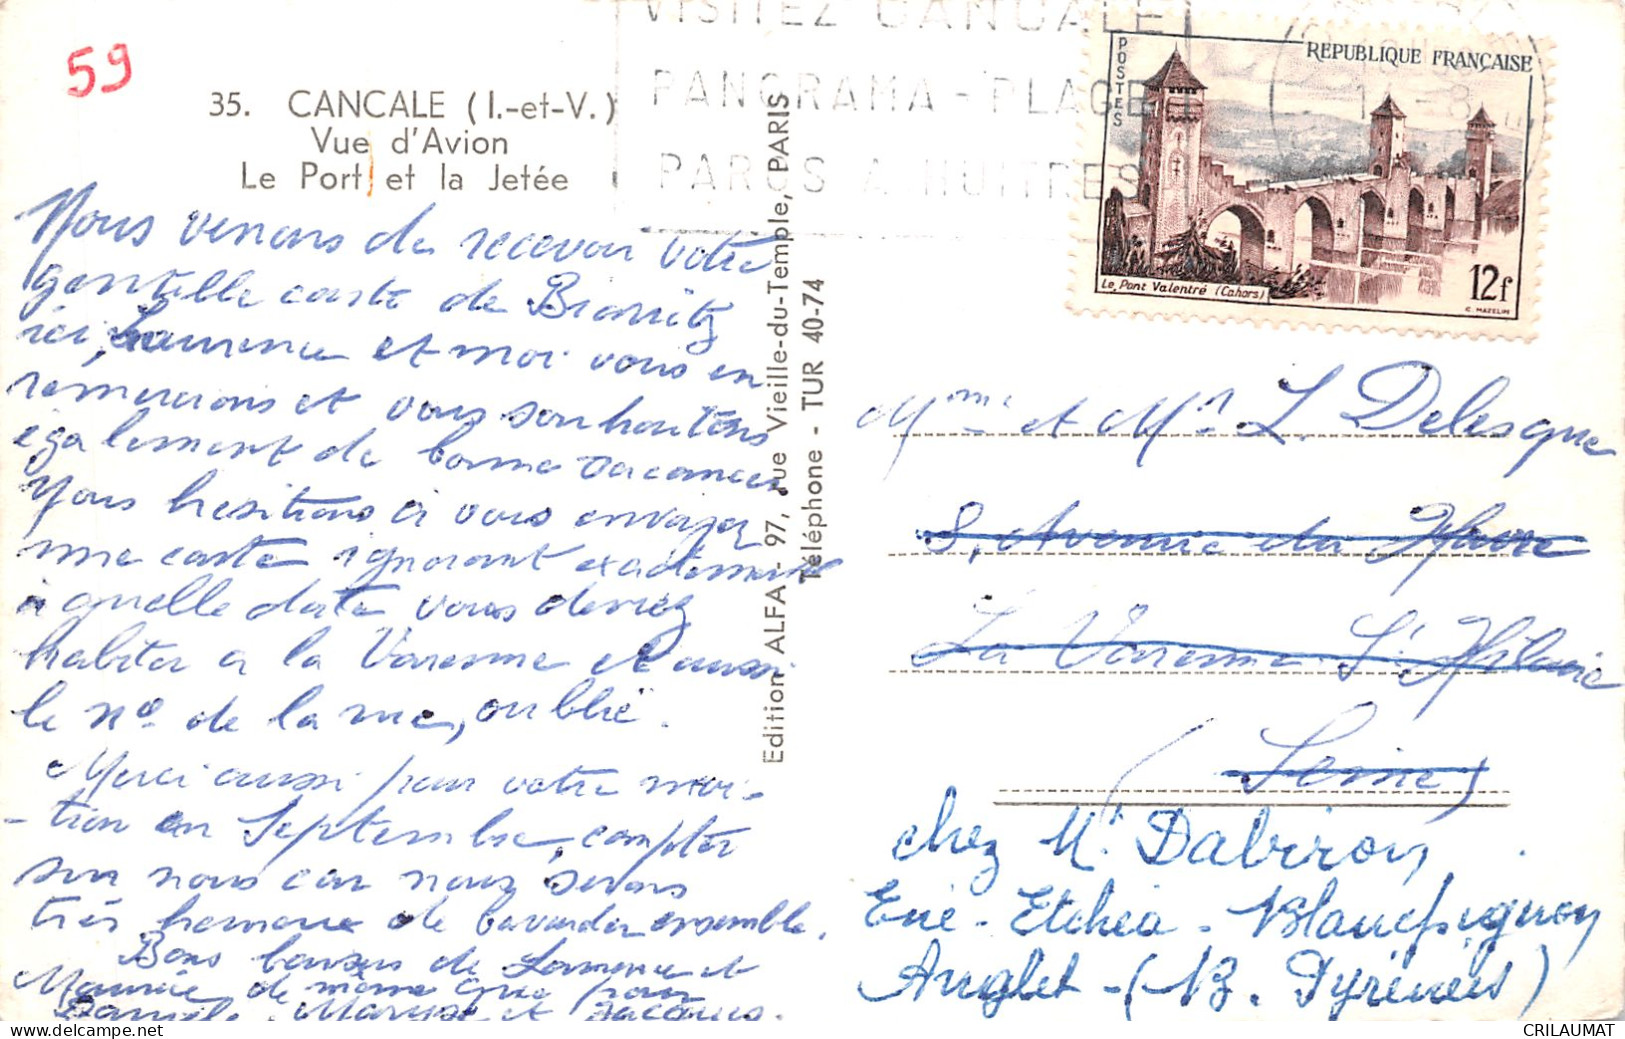 59
35. CANCALE (I.-et-V.)
Vue d'Avion
Le Port et la Jetée
Nous venons de recevoir votre
gentille carte de Biarritz
ici, Laurence et moi vous en
remercions et vous souhaitons
également de bonne vacances
Nous hesitions à vous envoyer
une carte ignorant exactement
à quelle date vous devriez
habiter à la Varenne et aussi
le nº de la rue, oublié.
Merci aussi pour votre invi-
-tion en Septembre, compter
sur nous car nous serons
très heureux de bavarder ensemble.
Bons baisers de Laurence et
Maurice de même que pour
Daniel, Maryse et Jacques.
Edition ALFA - 97, rue Vieille-du-Temple, PARIS
Téléphone - TUR 40-74
VISITEZ CANCALE
PANORAMA - PLAGE
PARCS A HUITRES
POSTES
REPUBLIQUE FRANÇAISE
Le Pont Valentré (Cahors)
12f
C. MAZELIN
Mme et Mr L. Delesque
8, Avenue du Havre
La Varenne St Hilaire
(Seine)
chez Mr. Dabiron
Enie - Etchea - Blancpignon
Anglet - (B. Pyrénées)
CRILAUMAT